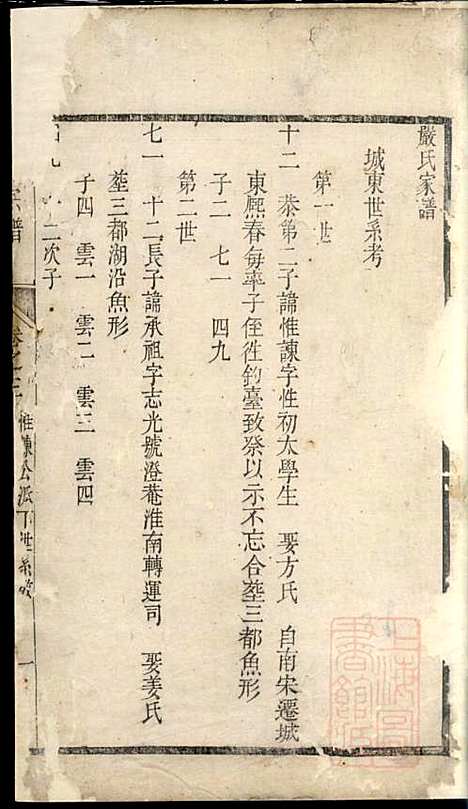 嚴氏家譜
城東世系考
第一世
十二 恭第二子諱惟諫字性初太學生 娶方氏 自南宋遷城
東熙春每率子侄徃釣臺致祭以示不忘合塟三都魚形
子二 七一 四九
第二世
七一 十二長子諱承祖字志光號澄菴淮南轉運司 娶姜氏
塟三都湖沿魚形
子四 雲一 雲二 雲三 雲四
二次子
譜
卷之二 惟諫公派下世系考 一
上海圖書館藏